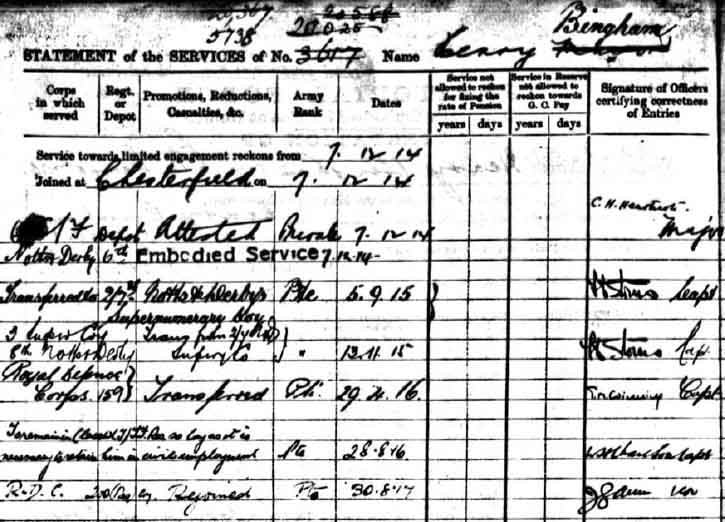 5738
STATEMENT of the SERVICES of No. 3617 Name Henry Bingham
Corps in which served Regt. or Depot Promotions, Reductions, Casualties, &c. Army Rank Dates Service not allowed to reckon for fixing the rate of Pension Service in Reserve not allowed to reckon towards G. C. Pay Signature of Officers certifying correctness of Entries
years days years days
Service towards limited engagement reckons from 7. 12 14
Joined at Chesterfield on 7. 12 14
Depot Attested Private 7. 12 14 Major
Notts & Derby 6th Embodied Service 7.12.14
Transferred to 2/7th Notts & Derbys Pte 5. 9. 15 Capt
Supernumerary Coy
8th Notts & Derby " 13.11.15 Capt
Royal Defence
Corps 159 Transferred Pte 29. 4. 16. Capt
To remain in as long as it is
necessary to retain him in civil employment Pte 28-8-16 Capt
R.D.C. Rejoined Pte 30.8.17